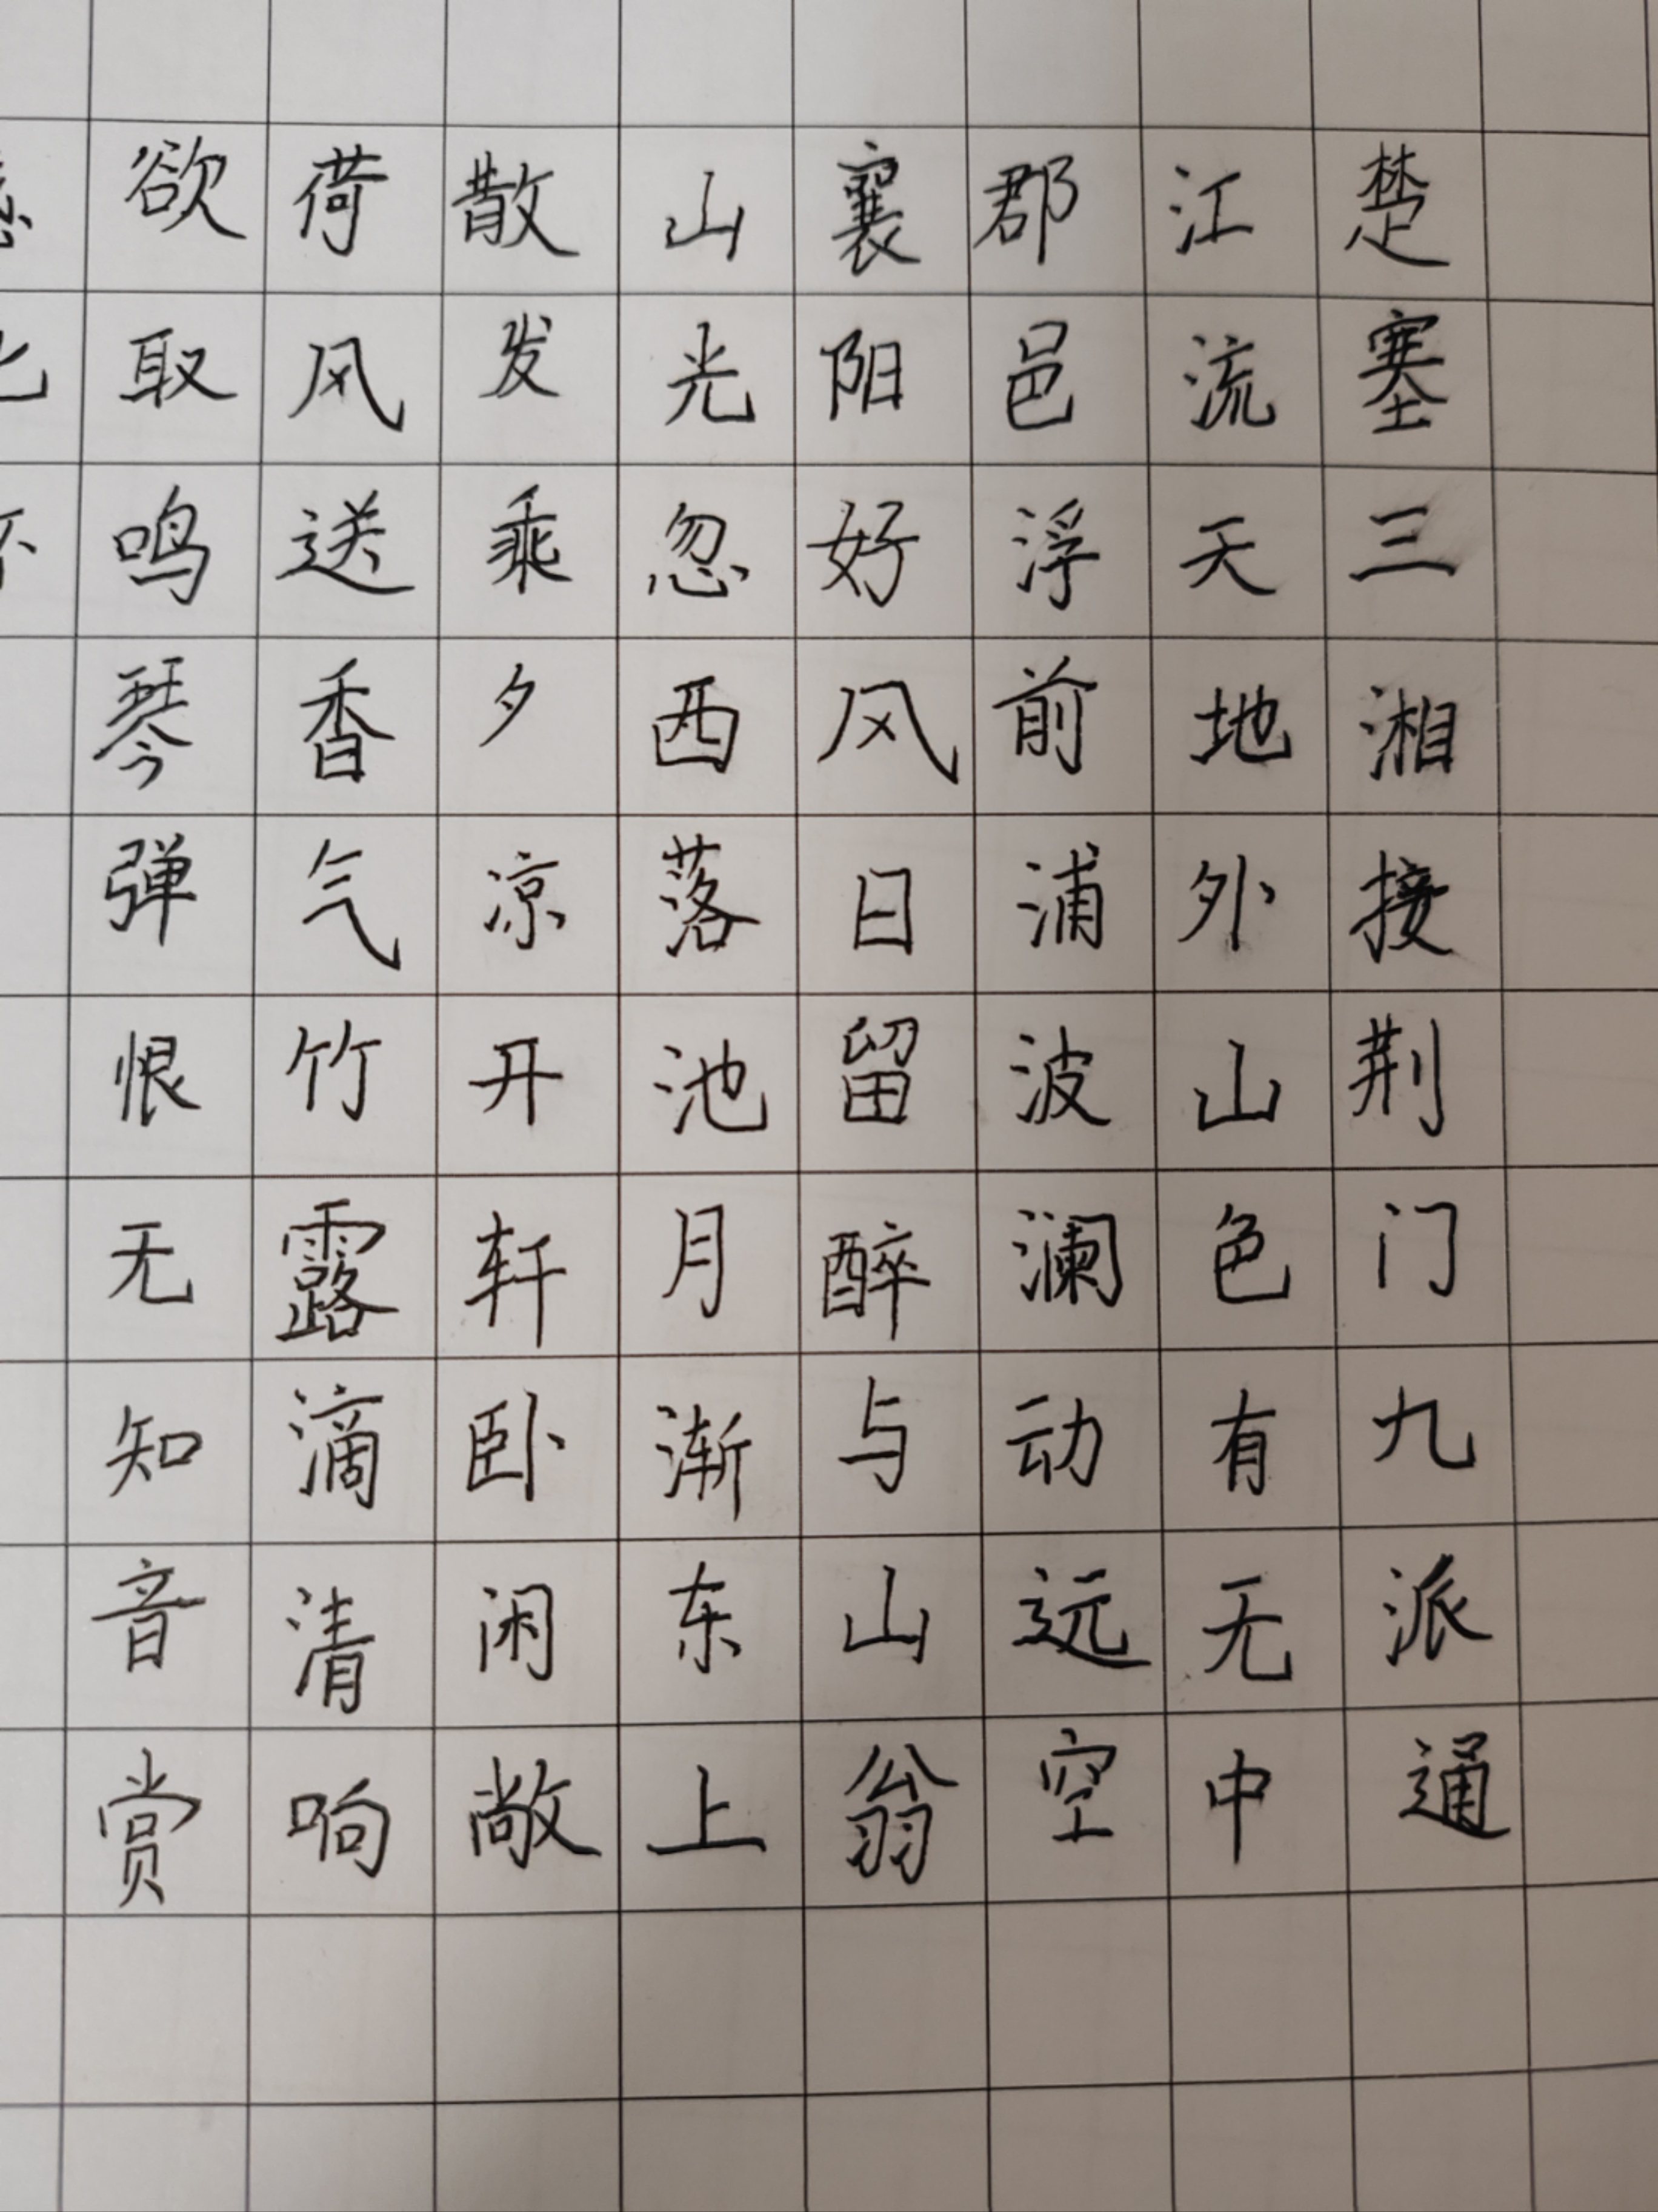 楚塞三湘接荆门九派通
江流天地外山色有无中
郡邑浮前浦波澜动远空
襄阳好风日留醉与山翁
山光忽西落池月渐东上
散发乘夕凉开轩卧闲敞
荷风送香气竹露滴清响
欲取鸣琴弹恨无知音赏